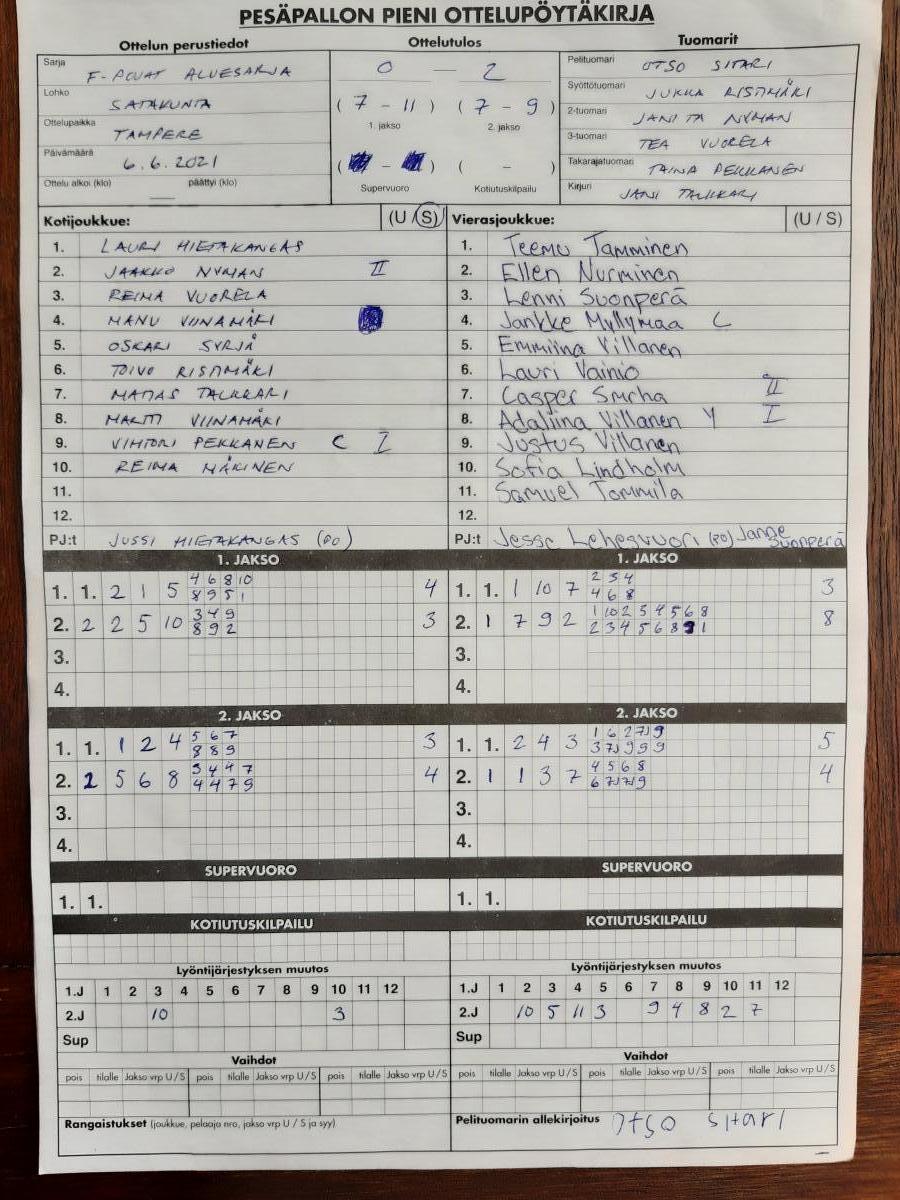 PESÄPALLON PIENI OTTELUPÖYTÄKIRJA
Ottelun perustiedot
Sarja F-POJAT ALUESARJA
Lohko SATAKUNTA
Ottelupaikka TAMPERE
Päivämäärä 6.6.2021
Ottelu alkoi (klo) päättyi (klo)
Ottelutulos
0 – 2
( 7 – 11 ) ( 7 – 9 )
1. jakso 2. jakso
( – ) ( – )
Supervuoro Kotiutuskilpailu
Tuomarit
Pelituomari OTSO SITARI
Syöttötuomari JUKKA RISTIMÄKI
2-tuomari JANITA NYMAN
3-tuomari TEA VUORELA
Takarajatuomari TAINA PEKKANEN
Kirjuri JANI TALKKARI
Kotijoukkue: (U / S)
1. LAURI HIETAKANGAS
2. JAAKKO NYMAN II
3. REIMA VUORELA
4. MANU VIINAMÄKI
5. OSKARI SYRJÄ
6. TOIVO RISTIMÄKI
7. MATIAS TALKKARI
8. MARTTI VIINAMÄKI
9. VIHTORI PEKKANEN C I
10. REIMA MÄKINEN
11.
12.
PJ:t JUSSI HIETAKANGAS (PO)
Vierasjoukkue: (U / S)
1. Teemu Tamminen
2. Ellen Nurminen
3. Lenni Suonperä
4. Jarkke Myllymaa C
5. Emmiina Villanen
6. Lauri Vainio
7. Casper Smrha II
8. Adaliina Villanen Y I
9. Justus Villanen
10. Sofia Lindholm
11. Samuel Tommila
12.
PJ:t Jesse Lehesvuori (PO) Janne Suonperä
1. JAKSO
1. 1. 2 1 5 4 6 8 10 4
8 9 5 1
2. 2 2 5 10 3 4 9 3
8 9 2
3.
4.
1. JAKSO
1. 1. 1 10 7 2 3 4 3
4 6 8
2. 1 7 9 2 1 10 2 3 4 5 6 8 8
2 3 4 5 6 8 9 1
3.
4.
2. JAKSO
1. 1. 1 2 4 5 6 7 3
8 8 9
2. 2 5 6 8 3 4 4 7 4
4 4 7 9
3.
4.
2. JAKSO
1. 1. 2 4 3 5
2. 1 1 3 7 4 5 6 8 4
3.
4.
SUPERVUORO
1. 1.
SUPERVUORO
1. 1.
KOTIUTUSKILPAILU
KOTIUTUSKILPAILU
Lyöntijärjestyksen muutos
1.J 1 2 3 4 5 6 7 8 9 10 11 12
2.J 10 3
Sup
Lyöntijärjestyksen muutos
1.J 1 2 3 4 5 6 7 8 9 10 11 12
2.J 10 5 11 3 9 4 8 2 7
Sup
Vaihdot
pois tilalle Jakso vrp U / S pois tilalle Jakso vrp U / S pois tilalle Jakso vrp U / S
Vaihdot
pois tilalle Jakso vrp U / S pois tilalle Jakso vrp U / S pois tilalle Jakso vrp U / S
Rangaistukset (joukkue, pelaaja nro, jakso vrp U / S ja syy)
Pelituomarin allekirjoitus Otso Sitari